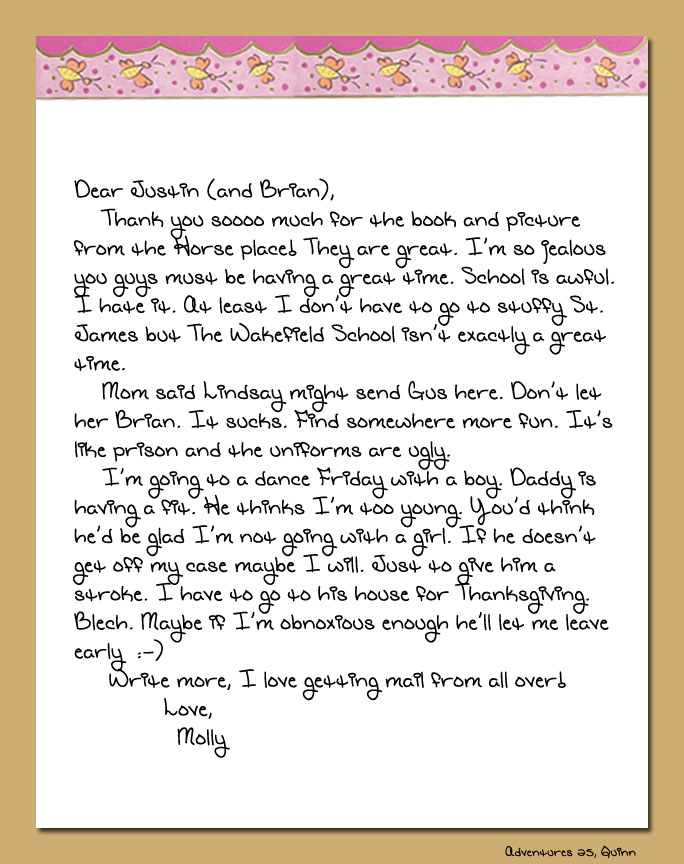 Dear Justin (and Brian),
Thank you soooo much for the book and picture
from the Horse place! They are great. I'm so jealous
you guys must be having a great time. School is awful.
I hate it. At least I don't have to go to stuffy St.
James but The Wakefield School isn't exactly a great
time.
Mom said Lindsay might send Gus here. Don't let
her Brian. It sucks. Find somewhere more fun. It's
like prison and the uniforms are ugly.
I'm going to a dance Friday with a boy. Daddy is
having a fit. He thinks I'm too young. You'd think
he'd be glad I'm not going with a girl. If he doesn't
get off my case maybe I will. Just to give him a
stroke. I have to go to his house for Thanksgiving.
Blech. Maybe if I'm obnoxious enough he'll let me leave
early :-)
Write more, I love getting mail from all over!
Love,
Molly
Adventures 25, Quinn